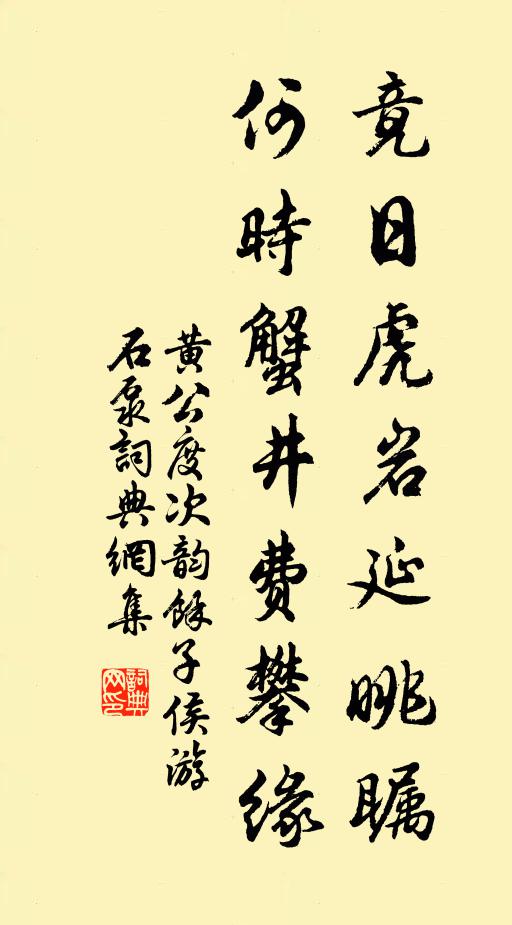 竟日虎岩延眺瞩
何時蟹井費攀緣
黄公度次韵餘子侯游
石泉詞典網集
詞典网印